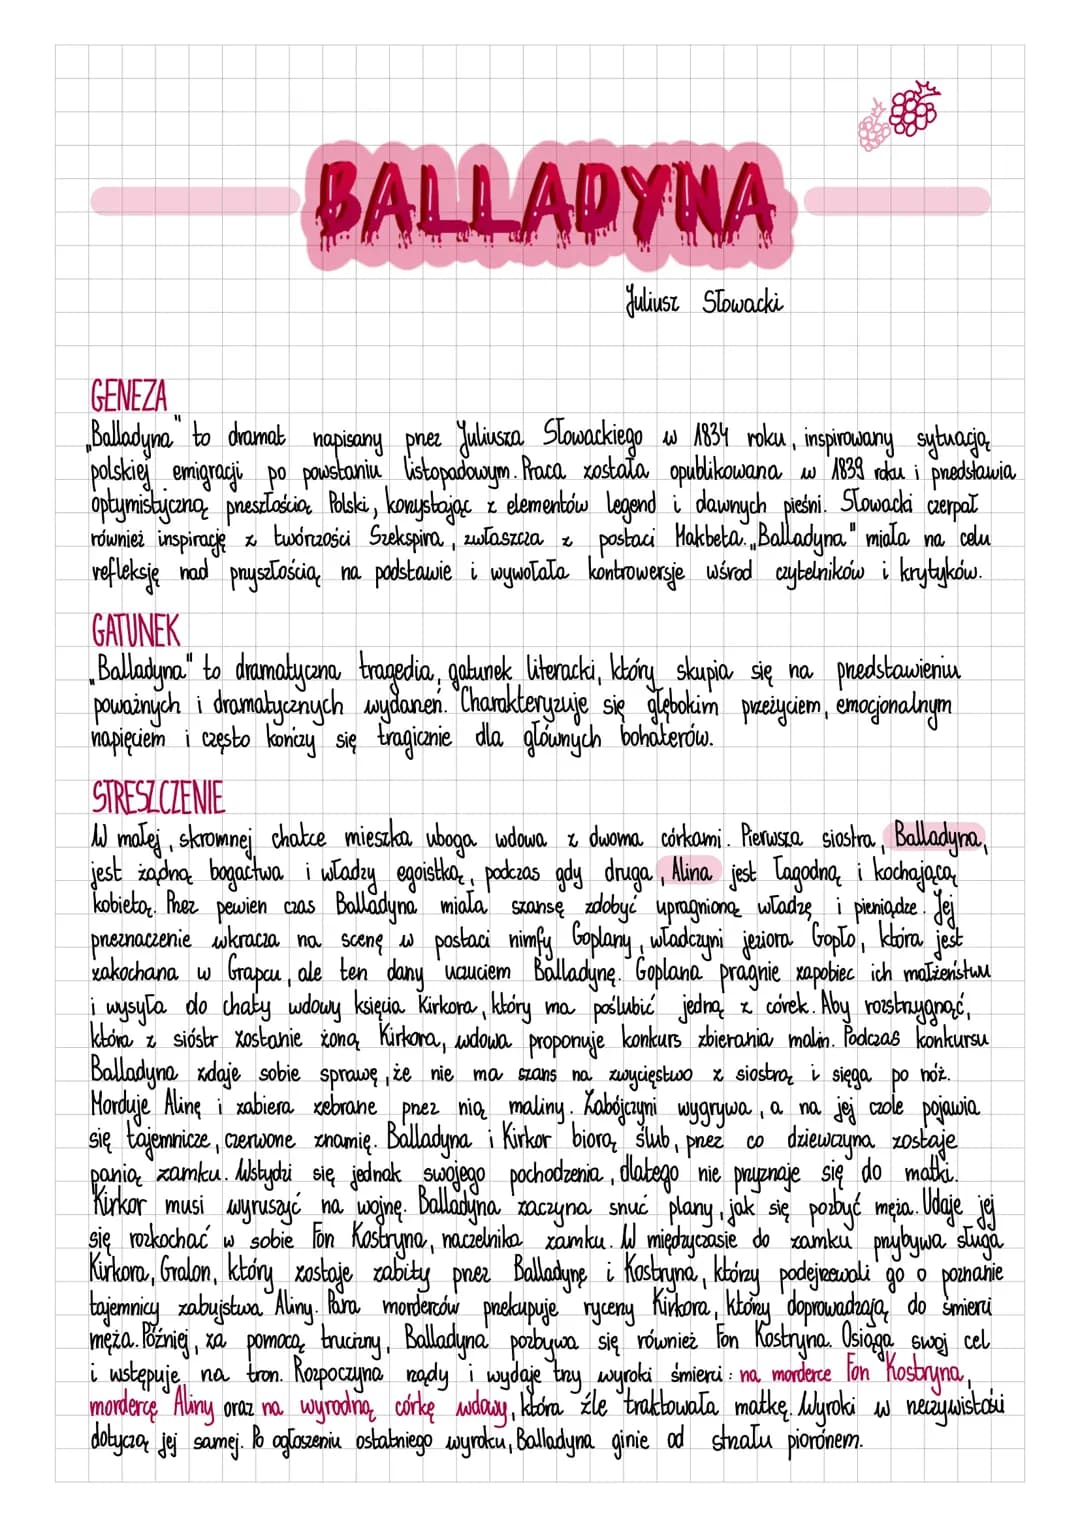 BALLADYNA
Juliusz Słowacki
GENEZA
„Balladyna" to dramat napisany przez Juliusza Słowackiego w 1834 roku, inspirowany sytuacją
polskiej emigracji po powstaniu listopadowym. Praca została opublikowana w 1839 roku i przedstawia
optymistyczną przeszłością Polski, korzystając z elementów legend i dawnych pieśni. Słowacki czerpał
również inspirację z twórczości Szekspira, zwłaszcza z postaci Makbeta. „Balladyna" miała na celu
refleksję nad przyszłością na podstawie i wywołała kontrowersje wśrod czytelników i krytyków.
GATUNEK
„Balladyna" to dramatyczna tragedia, gatunek literacki, który skupia się na przedstawieniu
poważnych i dramatycznych wydarzeń. Charakteryzuje się głębokim przeżyciem, emocjonalnym
napięciem i często kończy się tragicznie dla głównych bohaterów.
STRESZCZENIE
W małej, skromnej chatce mieszka uboga wdowa z dwoma córkami. Pierwsza siostra, Balladyna,
jest żądną bogactwa i władzy egoistką, podczas gdy druga, Alina jest łagodną i kochającą
kobietą. Przez pewien czas Balladyna miała szansę zdobyć upragnioną władzę i pieniądze. Jej
przeznaczenie wkracza na scenę w postaci nimfy Goplany, władczyni jeziora Gopło, która jest
zakochana w Grapcu, ale ten dany uczuciem Balladynę. Goplana pragnie zapobiec ich małżeństwu
i wysyła do chaty wdowy księcia Kirkora, który ma poślubić jedną z córek. Aby rozstrzygnąć,
która z sióstr zostanie żoną Kirkora, wdowa proponuje konkurs zbierania malin. Podczas konkursu
Balladyna zdaje sobie sprawę, że nie ma szans na zwycięstwo z siostrą i sięga po nóż.
Morduje Alinę i zabiera zebrane przez nią maliny. Zabójczyni wygrywa, a na jej czole pojawia
się tajemnicze, czerwone znamię. Balladyna i Kirkor biorą ślub, przez co dziewczyna zostaje
panią zamku. Wstydzi się jednak swojego pochodzenia, dlatego nie przyznaje się do matki.
Kirkor musi wyruszyć na wojnę. Balladyna zaczyna snuć plany, jak się pozbyć męża. Udaje jej
się rozkochać w sobie Fon Kostryna, naczelnika zamku. W międzyczasie do zamku przybywa sługa
Kirkora, Gralon, który zostaje zabity przez Balladynę i Kostryna, którzy podejrzewali go o poznanie
tajemnicy zabujstwa Aliny. Para morderców przekupuje rycerzy Kirkora, którzy doprowadzają do śmierci
męża. Później, za pomocą trucizny, Balladyna pozbywa się również Fon Kostryna. Osiąga swoj cel
i wstępuje na tron. Rozpoczyna rządy i wydaje trzy wyroki śmierci: na morderce Fon Kostryna,
mordercę Aliny oraz na wyrodną córkę wdowy, która źle traktowała matkę. Wyroki w rzeczywistości
dotyczą jej samej. Po ogłoszeniu ostatniego wyroku, Balladyna ginie od strzału piorónem.